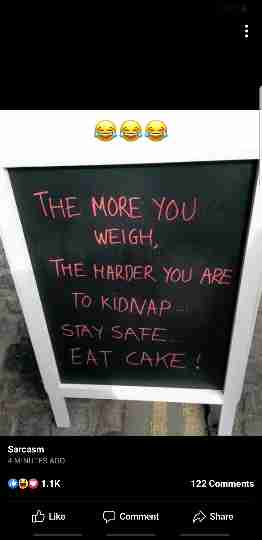 THE MORE YOU
WEIGH,
THE HARDER YOU ARE
TO KIDNAP...
STAY SAFE...
EAT CAKE!
Sarcasm
4 MINUTES AGO
1.1K
122 Comments
Like
Comment
Share